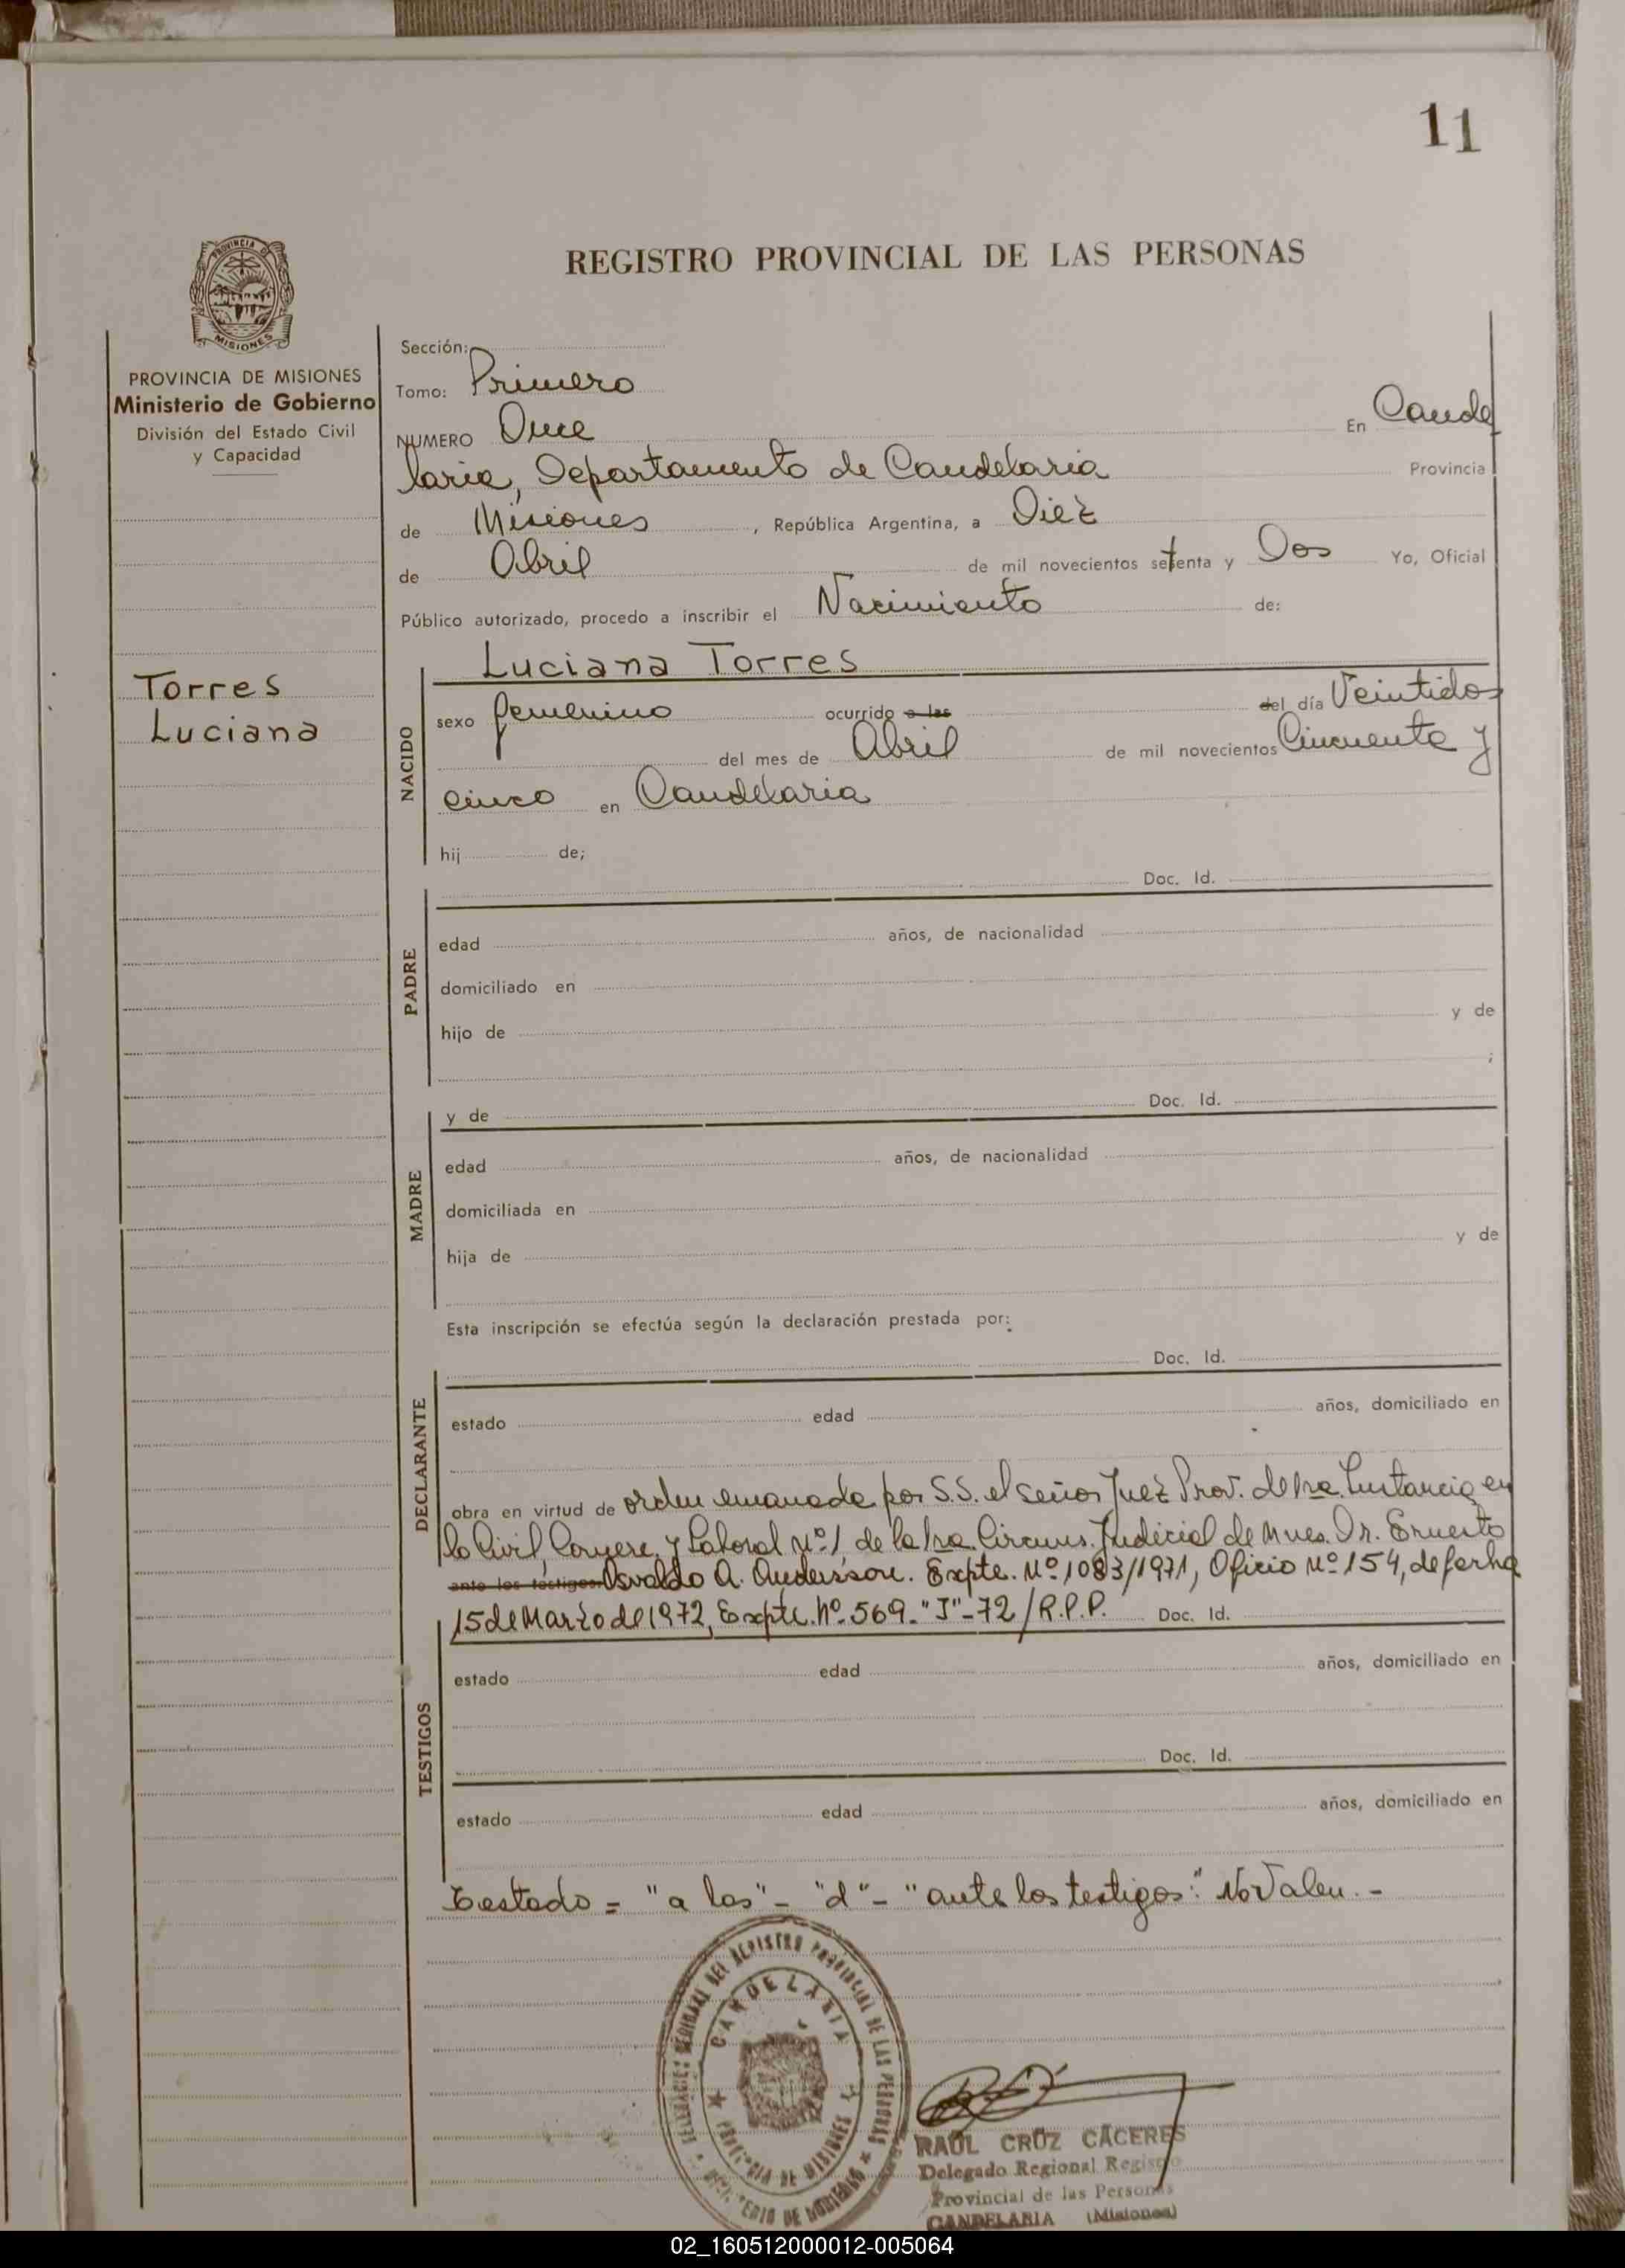 11
REGISTRO PROVINCIAL DE LAS PERSONAS
PROVINCIA DE
MISIONES
PROVINCIA DE MISIONES
Ministerio de Gobierno
División del Estado Civil
y Capacidad
Torres
Luciana
Sección:
Tomo: Primero
NUMERO Once En Cande
laria, Departamento de Candelaria Provincia
de Misiones, República Argentina, a Diez
de Abril de mil novecientos setenta y Dos Yo, Oficial
Público autorizado, procedo a inscribir el Nacimiento de:
NACIDO
Luciana Torres
sexo femenino ocurrido a las del día Veintidos
del mes de Abril de mil novecientos Cincuenta y
cinco en Candelaria
hij de;
Doc. Id.
PADRE
edad años, de nacionalidad
domiciliado en
hijo de y de
;
MADRE
y de Doc. Id.
edad años, de nacionalidad
domiciliada en
hija de y de
Esta inscripción se efectúa según la declaración prestada por:
Doc. Id.
DECLARANTE
estado edad años, domiciliado en
obra en virtud de orden emanada por S.S. el señor Juez Prov. de 1ra. Instancia en
lo Civil, Comerc. y Laboral Nº 1 de la 1ra. Circuns. Judicial de Mnes. Dr. Ernesto
ante los testigos Osvaldo A. Andersson. Expte. Nº 1083/1971, Oficio Nº 154, de fecha
15 de Marzo de 1972, Expte. Nº 569-"J"-72/R.P.P. Doc. Id.
TESTIGOS
estado edad años, domiciliado en
Doc. Id.
estado edad años, domiciliado en
Testado = "a las" - "d" - "ante los testigos": No Valen. -
DEL REGISTRO PROVINCIAL DE LAS PERSONAS
CANDELARIA
PROVINCIA DE MISIONES
MINISTERIO DE GOBIERNO
RAÚL CRUZ CÁCERES
Delegado Regional Registro
Provincial de las Personas
CANDELARIA (Misiones)
02_160512000012-005064